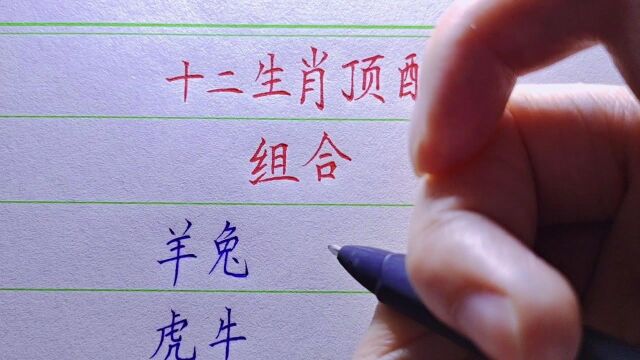 十二生肖顶配
组合
羊兔
虎牛